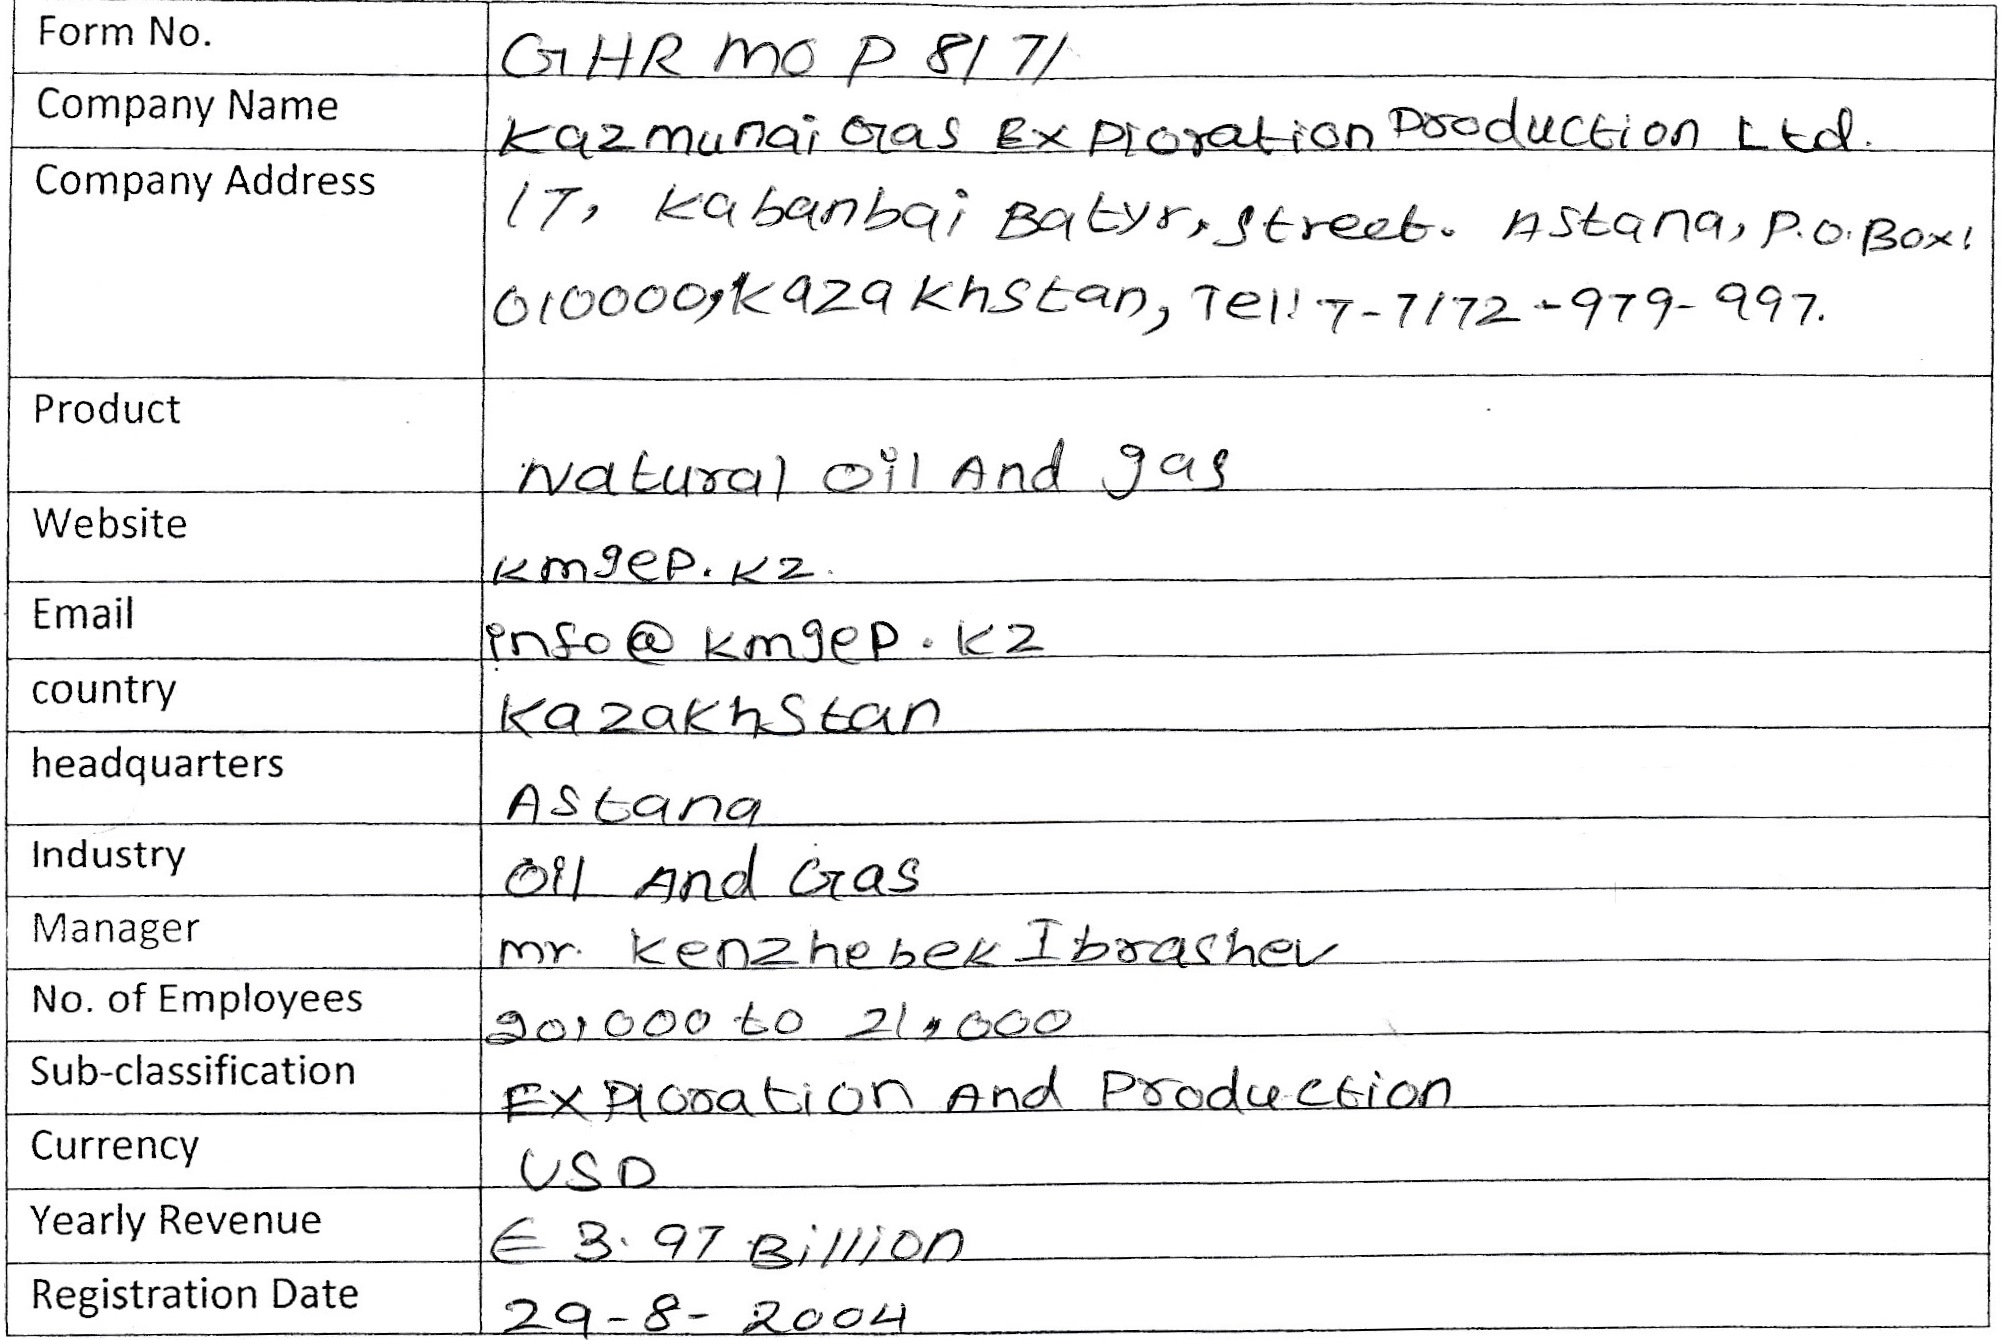 Form No.
GHR MO P 8171
Company Name
Kazmunai Gas Exploration Production Ltd.
Company Address
17, Kabanbai Batyr, street. Astana, P.O. Box:
010000, Kazakhstan, Tel: 7-7172-979-997.
Product
Natural Oil And gas
Website
kmgep.kz.
Email
info@kmgep.kz
country
Kazakhstan
headquarters
Astana
Industry
Oil And Gas
Manager
mr. Kenzhebek Ibrashev
No. of Employees
20,000 to 21,000
Sub-classification
Exploration And Production
Currency
USD
Yearly Revenue
€ 3.97 Billion
Registration Date
29-8-2004